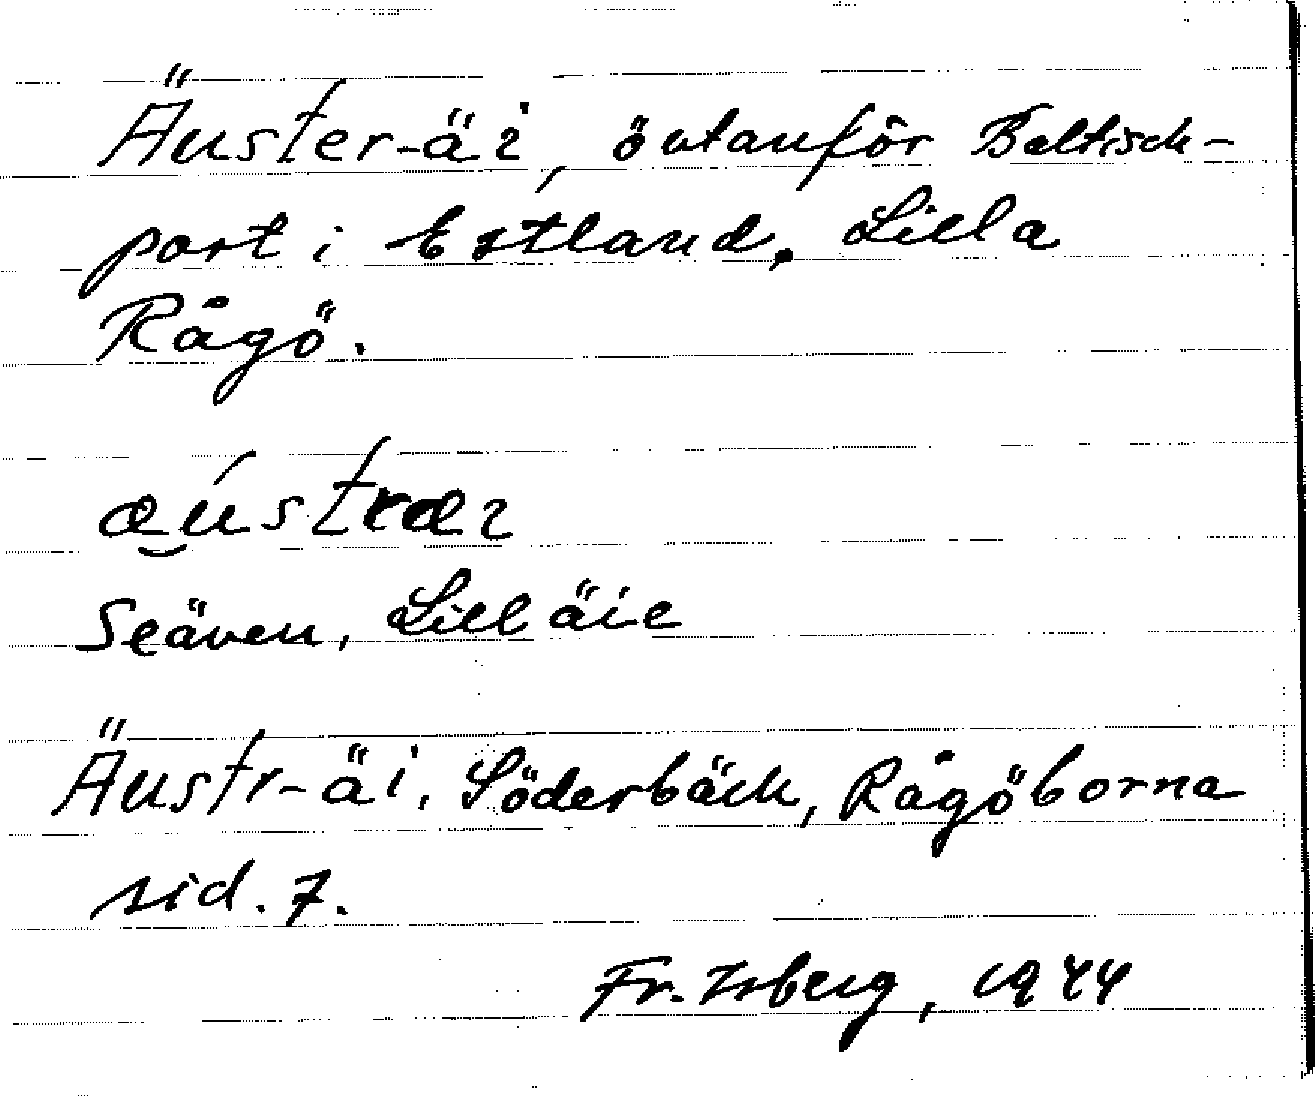 Äuster-äi, övtanför Baltisch-
port i Estland. Lilla
Rågö.
æú̯stræi
Seäven, Lill äie
Äustr-äi. Söderbäck, Rågöborna
sid. 7.
Fr. Isberg, 1944